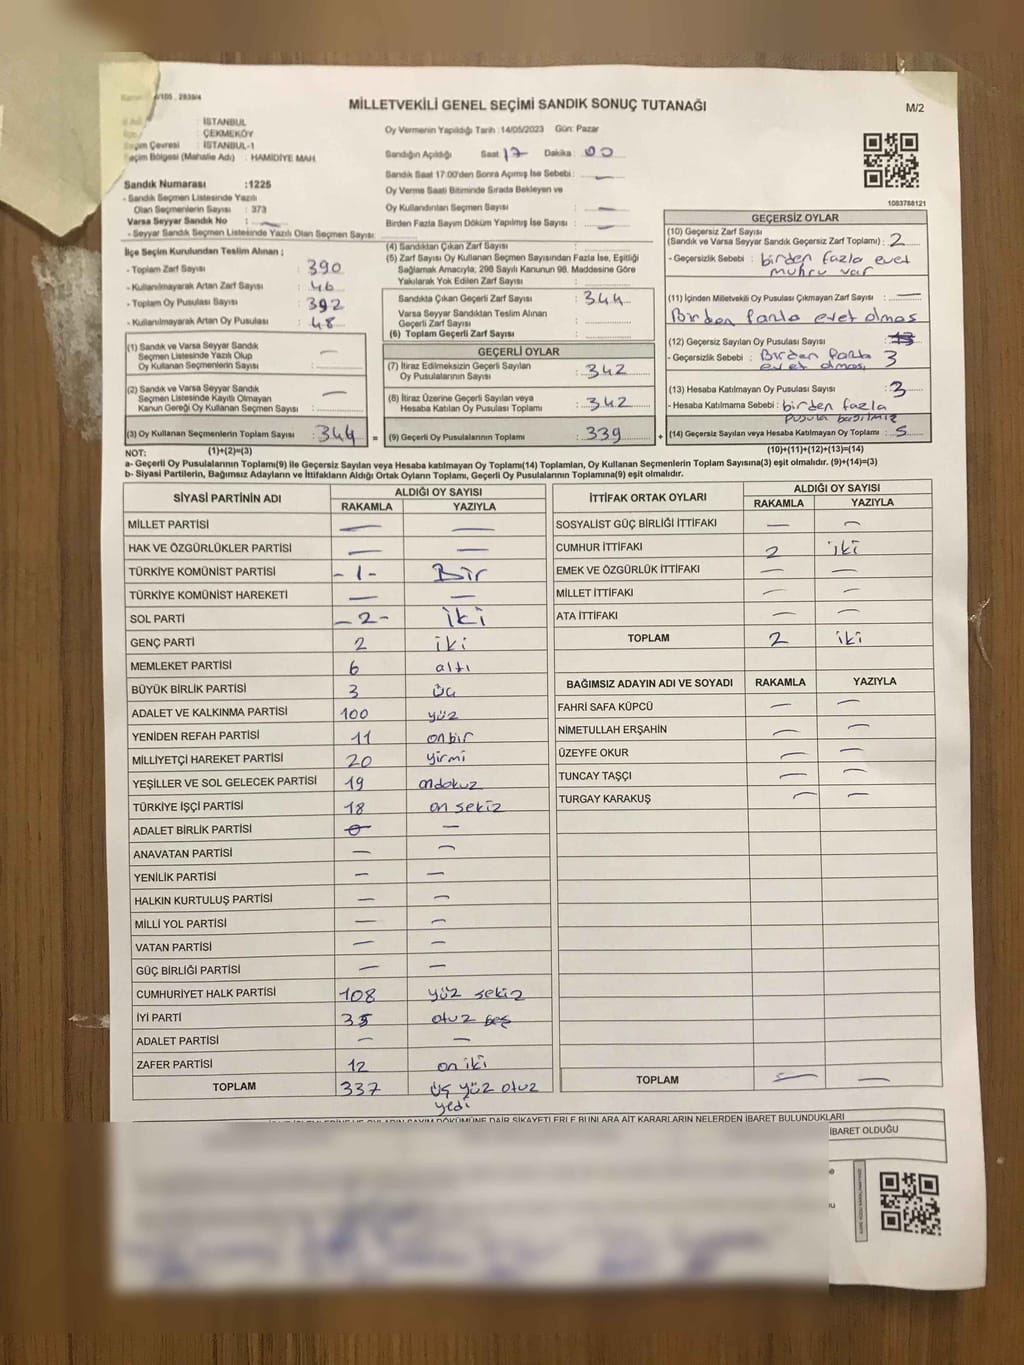 MİLLETVEKİLİ GENEL SEÇİMİ SANDIK SONUÇ TUTANAĞI
M/2
: İSTANBUL
: ÇEKMEKÖY
Seçim Çevresi : İSTANBUL-1
Seçim Bölgesi (Mahalle Adı) : HAMİDİYE MAH.
Sandık Numarası :1225
- Sandık Seçmen Listesinde Yazılı
Olan Seçmenlerin Sayısı : 373
Varsa Seyyar Sandık No : —
- Seyyar Sandık Seçmen Listesinde Yazılı Olan Seçmen Sayısı:
Oy Vermenin Yapıldığı Tarih :14/05/2023 Gün: Pazar
Sandığın Açıldığı Saat 17 Dakika : 00
Sandık Saat 17:00'den Sonra Açımış İse Sebebi : —
Oy Verme Saati Bitiminde Sırada Bekleyen ve
Oy Kullandırılan Seçmen Sayısı : —
Birden Fazla Sayım Döküm Yapılmış İse Sayısı : —
1083788121
İlçe Seçim Kurulundan Teslim Alınan ;
- Toplam Zarf Sayısı : 390
- Kullanılmayarak Artan Zarf Sayısı : 46
- Toplam Oy Pusulası Sayısı : 392
- Kullanılmayarak Artan Oy Pusulası : 48
(1) Sandık ve Varsa Seyyar Sandık
Seçmen Listesinde Yazılı Olup
Oy Kullanan Seçmenlerin Sayısı : —
(2) Sandık ve Varsa Seyyar Sandık
Seçmen Listesinde Kayıtlı Olmayan
Kanun Gereği Oy Kullanan Seçmen Sayısı : —
(3) Oy Kullanan Seçmenlerin Toplam Sayısı : 344 =
(4) Sandıktan Çıkan Zarf Sayısı :
(5) Zarf Sayısı Oy Kullanan Seçmen Sayısından Fazla İse, Eşitliği
Sağlamak Amacıyla, 298 Sayılı Kanunun 98. Maddesine Göre
Yakılarak Yok Edilen Zarf Sayısı :
Sandıkta Çıkan Geçerli Zarf Sayısı : 344
Varsa Seyyar Sandıktan Teslim Alınan
Geçerli Zarf Sayısı :
(6) Toplam Geçerli Zarf Sayısı :
GEÇERLİ OYLAR
(7) İtiraz Edilmeksizin Geçerli Sayılan
Oy Pusulalarının Sayısı : 342
(8) İtiraz Üzerine Geçerli Sayılan veya
Hesaba Katılan Oy Pusulası Toplamı : 342
(9) Geçerli Oy Pusulalarının Toplamı : 339 +
GEÇERSİZ OYLAR
(10) Geçersiz Zarf Sayısı
(Sandık ve Varsa Seyyar Sandık Geçersiz Zarf Toplamı) : 2
- Geçersizlik Sebebi : birden fazla evet
muhru var
(11) İçinden Milletvekili Oy Pusulası Çıkmayan Zarf Sayısı : —
Birden fanla evet olması
(12) Geçersiz Sayılan Oy Pusulası Sayısı :
- Geçersizlik Sebebi : Birden fazla 3
evet olması
(13) Hesaba Katılmayan Oy Pusulası Sayısı : 3
- Hesaba Katılmama Sebebi : birden fazla
pusula
(14) Geçersiz Sayılan veya Hesaba Katılmayan Oy Toplamı : 5
NOT: (1)+(2)=(3) (10)+(11)+(12)+(13)=(14)
a- Geçerli Oy Pusulalarının Toplamı(9) ile Geçersiz Sayılan veya Hesaba katılmayan Oy Toplamı(14) Toplamları, Oy Kullanan Seçmenlerin Toplam Sayısına(3) eşit olmalıdır. (9)+(14)=(3)
b- Siyasi Partilerin, Bağımsız Adayların ve İttifakların Aldığı Ortak Oyların Toplamı, Geçerli Oy Pusulalarının Toplamına(9) eşit olmalıdır.
SİYASİ PARTİNİN ADI ALDIĞI OY SAYISI
RAKAMLA YAZIYLA
MİLLET PARTİSİ — —
HAK VE ÖZGÜRLÜKLER PARTİSİ — —
TÜRKİYE KOMÜNİST PARTİSİ -1- Bir
TÜRKİYE KOMÜNİST HAREKETİ — —
SOL PARTİ -2- iki
GENÇ PARTİ 2 iki
MEMLEKET PARTİSİ 6 altı
BÜYÜK BİRLİK PARTİSİ 3 üç
ADALET VE KALKINMA PARTİSİ 100 yüz
YENİDEN REFAH PARTİSİ 11 onbir
MİLLİYETÇİ HAREKET PARTİSİ 20 yirmi
YEŞİLLER VE SOL GELECEK PARTİSİ 19 ondokuz
TÜRKİYE İŞÇİ PARTİSİ 18 on sekiz
ADALET BİRLİK PARTİSİ 0 —
ANAVATAN PARTİSİ — —
YENİLİK PARTİSİ — —
HALKIN KURTULUŞ PARTİSİ — —
MİLLİ YOL PARTİSİ — —
VATAN PARTİSİ — —
GÜÇ BİRLİĞİ PARTİSİ — —
CUMHURİYET HALK PARTİSİ 108 yüz sekiz
İYİ PARTİ 35 otuz beş
ADALET PARTİSİ — —
ZAFER PARTİSİ 12 on iki
TOPLAM 337 üç yüz otuz
yedi
İTTİFAK ORTAK OYLARI ALDIĞI OY SAYISI
RAKAMLA YAZIYLA
SOSYALİST GÜÇ BİRLİĞİ İTTİFAKI — —
CUMHUR İTTİFAKI 2 iki
EMEK VE ÖZGÜRLÜK İTTİFAKI — —
MİLLET İTTİFAKI — —
ATA İTTİFAKI — —
TOPLAM 2 iki
BAĞIMSIZ ADAYIN ADI VE SOYADI RAKAMLA YAZIYLA
FAHRİ SAFA KÜPCÜ — —
NİMETULLAH ERŞAHİN — —
ÜZEYFE OKUR — —
TUNCAY TAŞÇI — —
TURGAY KARAKUŞ — —
TOPLAM — —
DÖKÜMÜNE DAİR ŞİKAYETLERLE BUNLARA AİT KARARLARIN NELERDEN İBARET BULUNDUKLARI
İBARET OLDUĞU